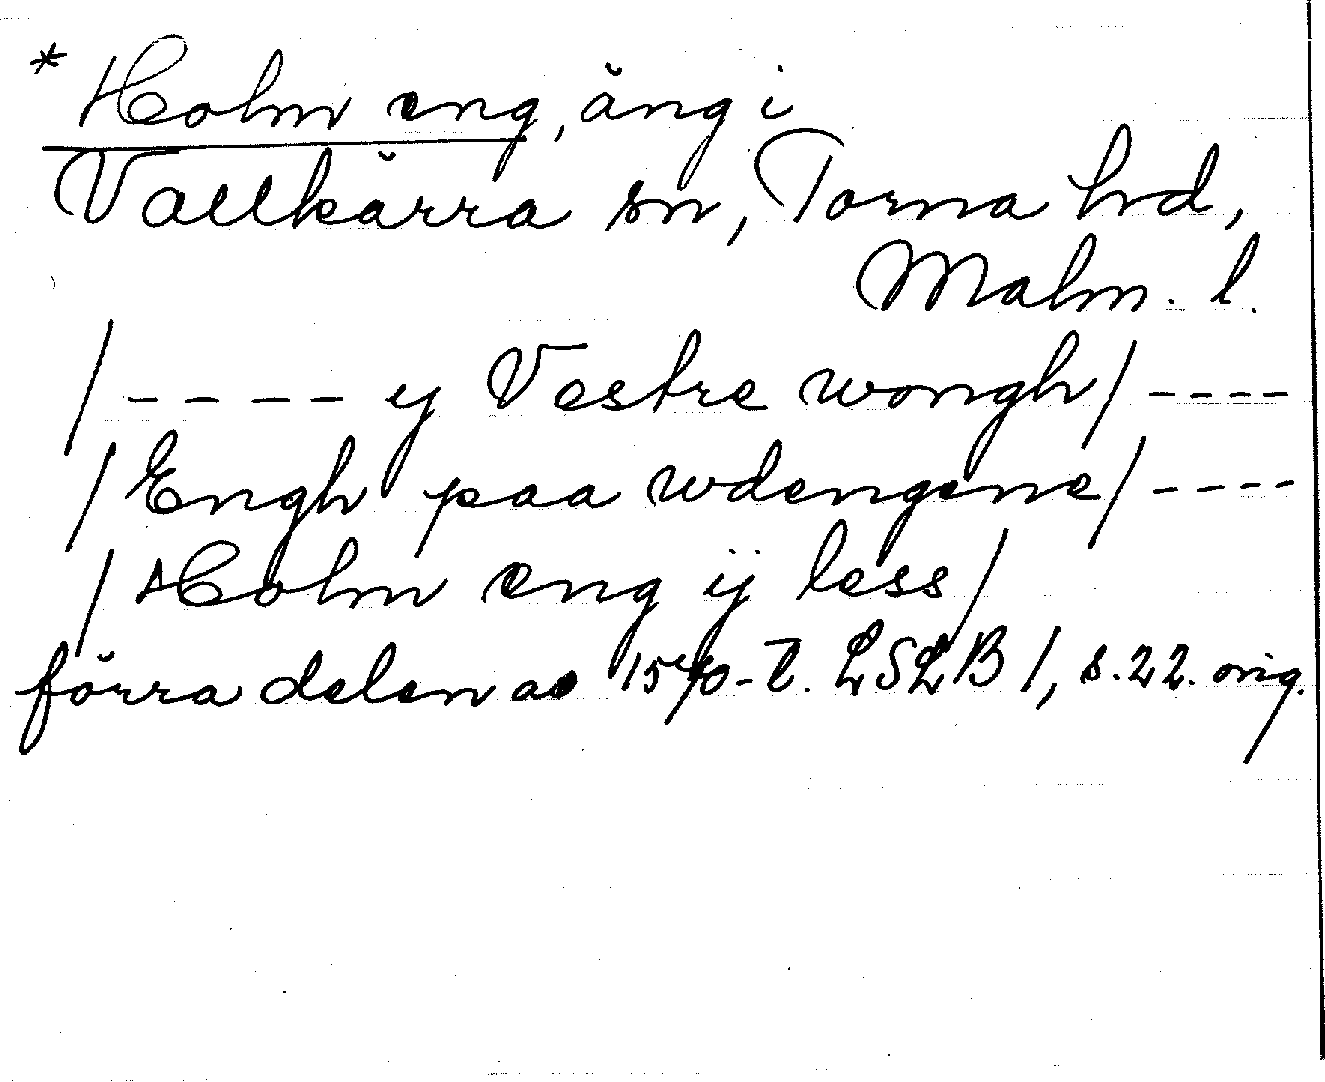 * Holm eng, äng i
Vallkärra sn, Torna hrd,
Malm. l.
/ - - - - y Vestre wongh / - - - -
/ Engh paa wdengene / - - - -
/ Holm eng ij less /
förra delen av 1570-t. LSLB 1, s. 22. orig.